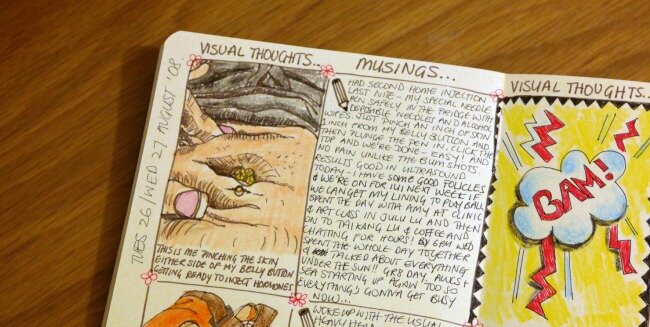 TUES 26/WED 27 AUGUST '08
VISUAL THOUGHTS..
THIS IS ME PINCHING THE SKIN
EITHER SIDE OF MY BELLY BUTTON
GETTING READY TO INJECT HORMONES
MUSINGS...
HAD SECOND HOME INJECTION
LAST NITE - MY SPECIAL NEEDLE
PEN SAFELY IN THE FRIDGE WITH
DISPOSABLE NEEDLES AND ALCOHOL
WIPES. JUST PINCH AN INCH OF SKIN
1 INCH FROM MY BELLY BUTTON AND
THEN PLUNGE THE PEN IN, CLICK THE
TOP AND WE'RE DONE - EASY! AND
NO PAIN UNLIKE THE BUM SHOTS.
RESULTS GOOD IN ULTRASOUND
TODAY - I HAVE SOME GOOD FOLICLES
& WE'RE ON FOR IUI NEXT WEEK IF
WE CAN GET MY LINING TO PLAY BALL
SPENT THE DAY WITH AMY AT CLINIC
& ART CLASS IN JULU LU AND THEN
ON TO TAI KANG LU & COFFEE AND
CHATTING FOR HOURS! WED
SPENT THE WHOLE DAY TOGETHER
& TALKED ABOUT EVERYTHING
UNDER THE SUN!! GR8 DAY, AUKS &
SEA STARTING UP AGAIN TOO SO
EVERYTHING'S GONNA GET BUSY
NOW...
WOKE UP WITH THE USUAL
HEAVY HEAD
VISUAL THOUGHTS...
BAM!